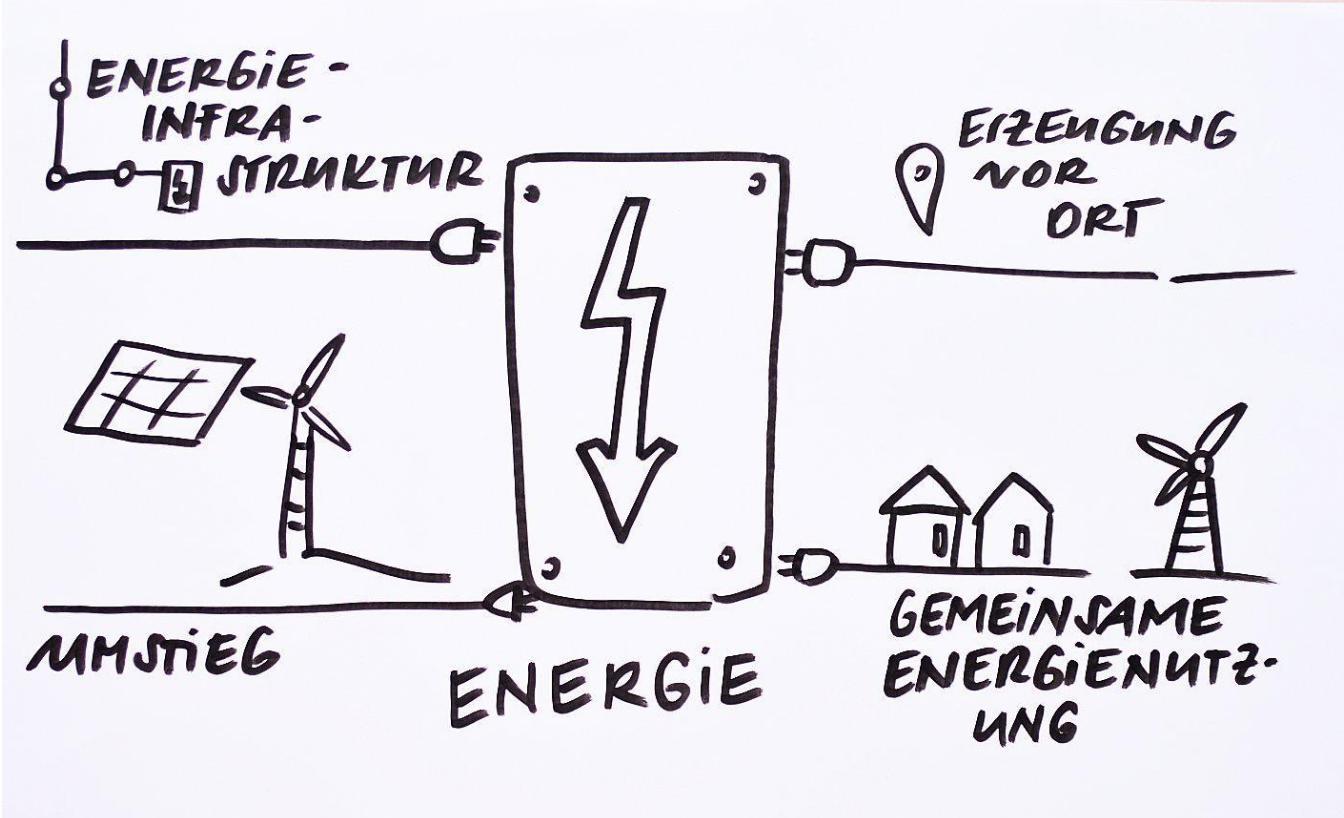 ENERGiE-
INFRA-
STRUKTUR
ERZEUGUNG
VOR
ORT
UMSTiEG
ENERGiE
GEMEiNSAME
ENERGiENUTZ-
UNG